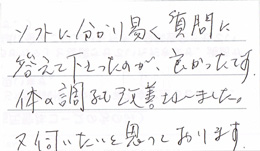 ソフトに分かり易く質問に
答えて下さったのが、良かったです。
体の調子も改善しました。
又伺いたいと思っております。